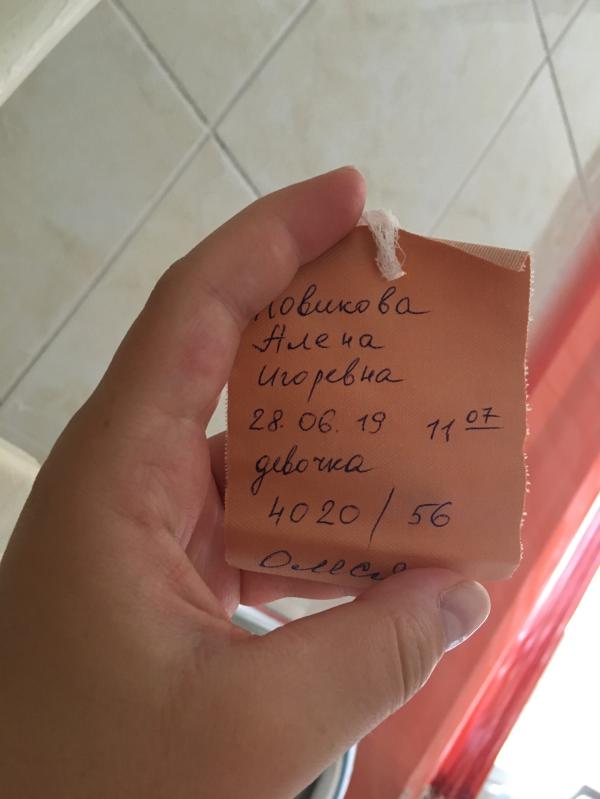 Новикова
Алена
Игоревна
28.06.19 11 07
девочка
4020/56
Олеся